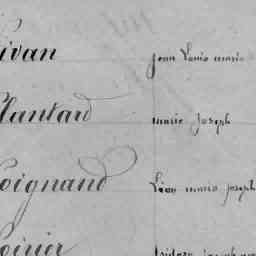 ivan Jean Louis marie
lantard marie Joseph
oignand Léon marie joseph
oirier Isidore Joseph